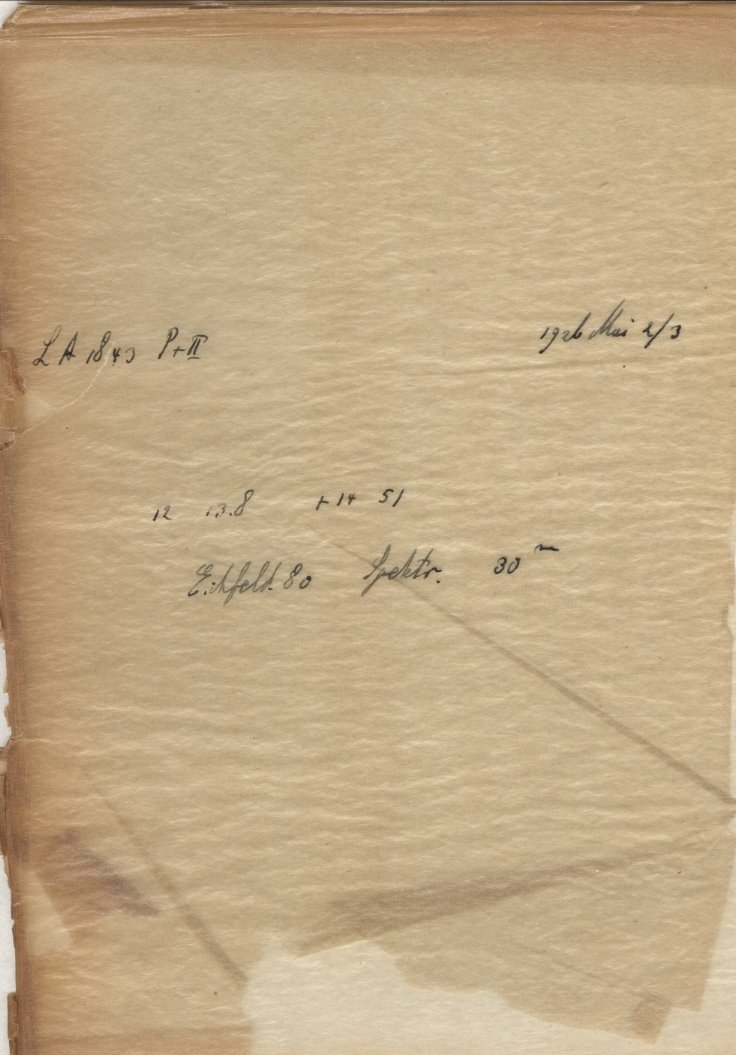 LA 1843 P+II 1926 Mai 2/3
12 13.8 +14 51
Eichfeld. 80 Spektr. 30 m